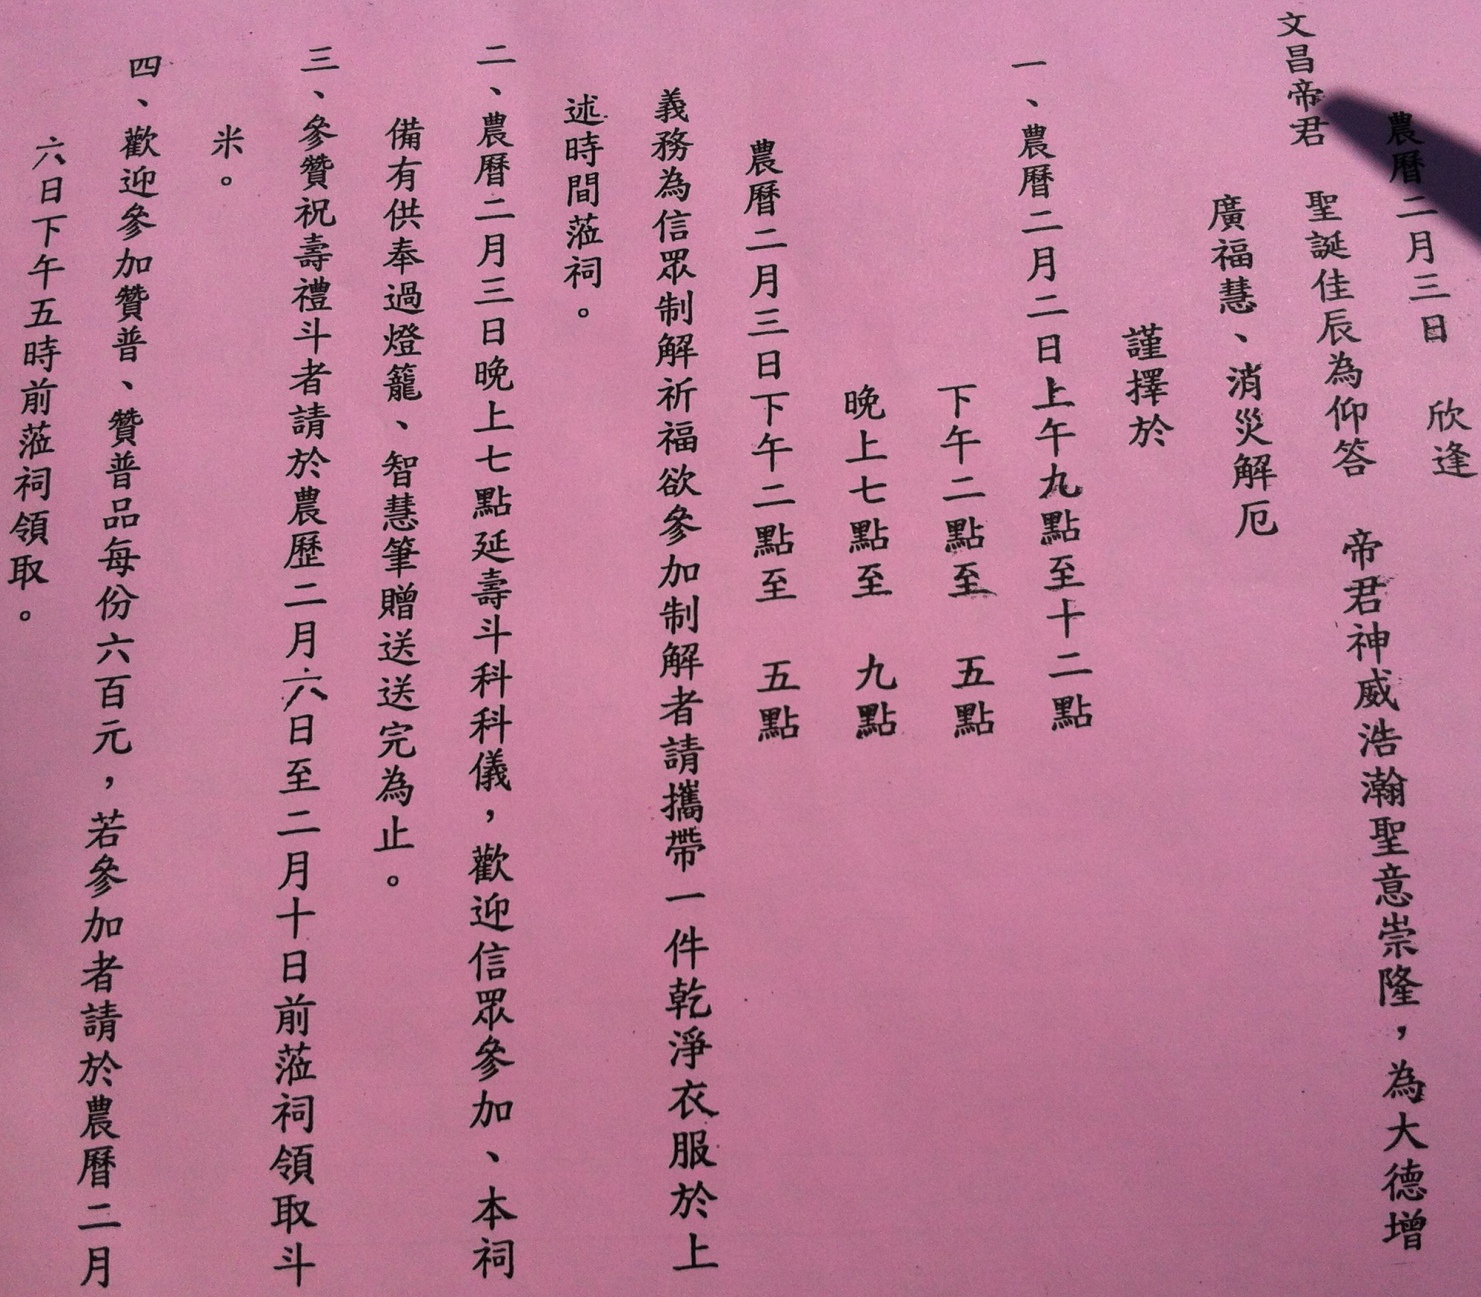 農曆二月三日　欣逢
文昌帝君　聖誕佳辰為仰答　帝君神威浩瀚聖意崇隆，為大德增
廣福慧、消災解厄
謹擇於
一、農曆二月二日上午九點至十二點
下午二點至　五點
晚上七點至　九點
農曆二月三日下午二點至　五點
義務為信眾制解祈福欲參加制解者請攜帶一件乾淨衣服於上
述時間蒞祠。
二、農曆二月三日晚上七點延壽斗科科儀，歡迎信眾參加、本祠
備有供奉過燈籠、智慧筆贈送送完為止。
三、參贊祝壽禮斗者請於農歷二月六日至二月十日前蒞祠領取斗
米。
四、歡迎參加贊普、贊普品每份六百元，若參加者請於農曆二月
六日下午五時前蒞祠領取。